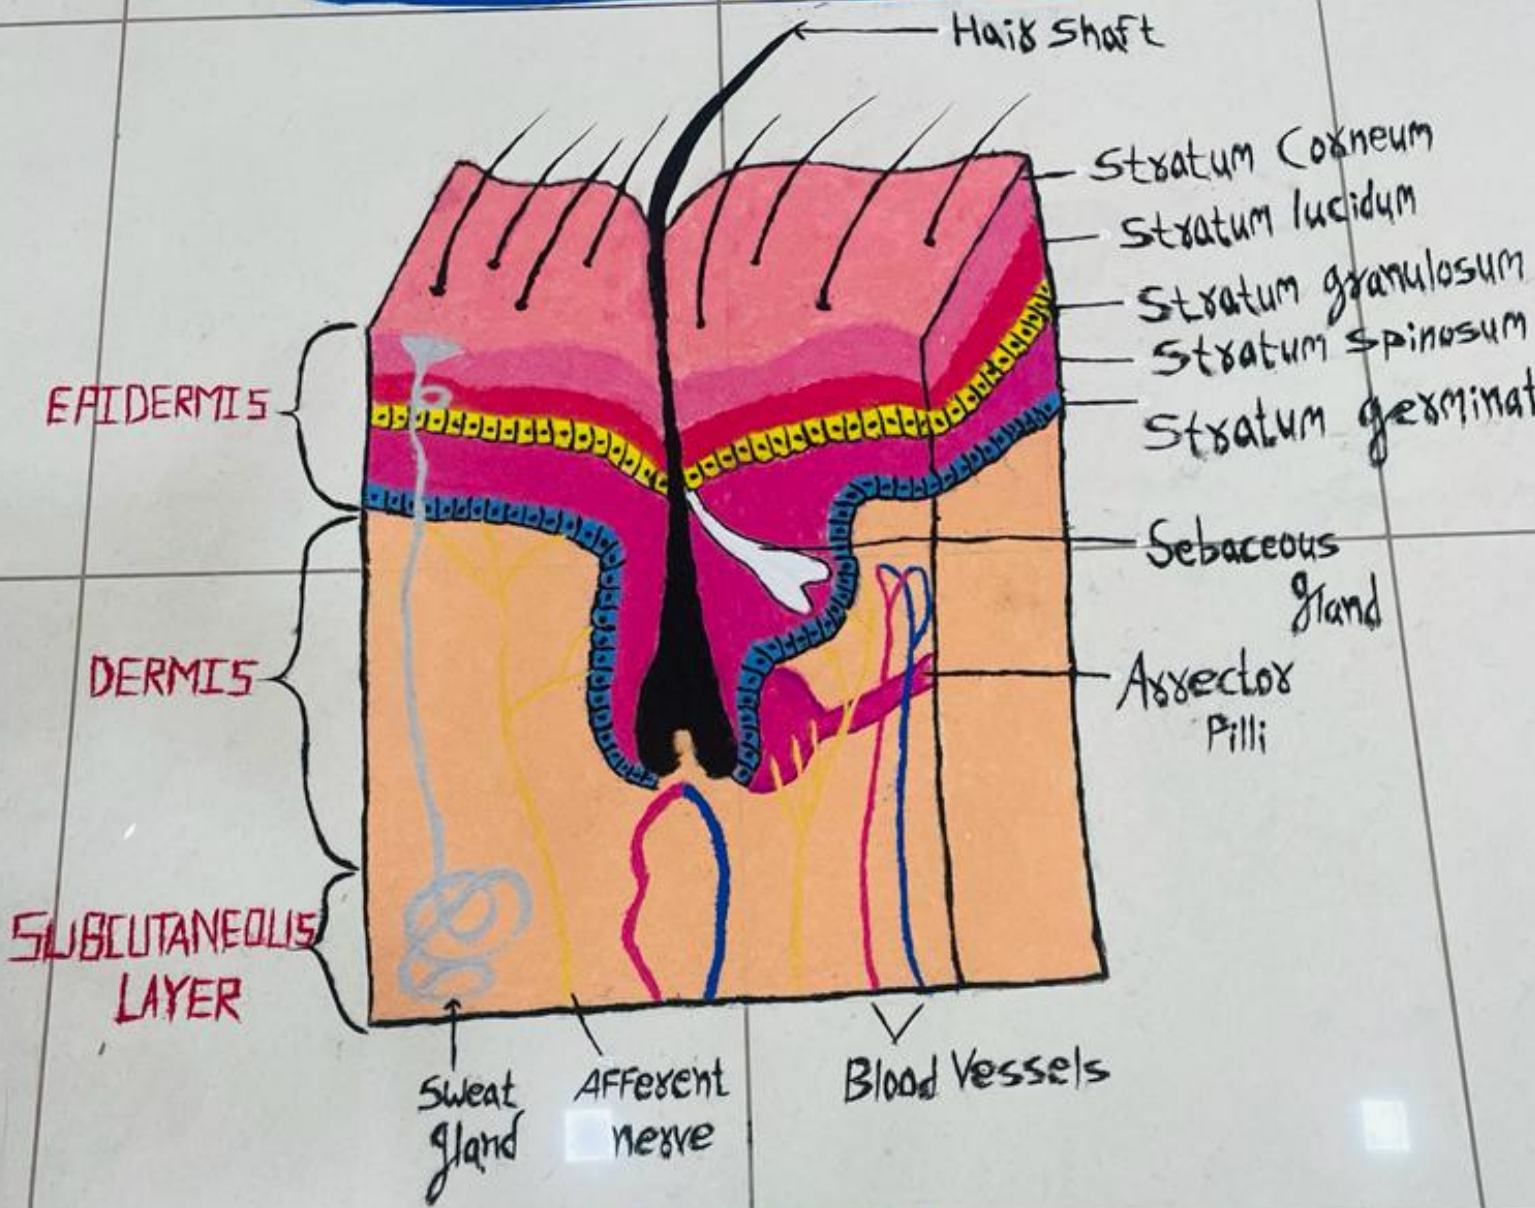 Hair Shaft
Stratum Corneum
Stratum lucidum
Stratum granulosum
Stratum Spinosum
Stratum germinat
EPIDERMIS
Sebaceous
gland
DERMIS
Arrector
Pilli
SUBCUTANEOUS
LAYER
Sweat
gland
Afferent
nerve
Blood Vessels